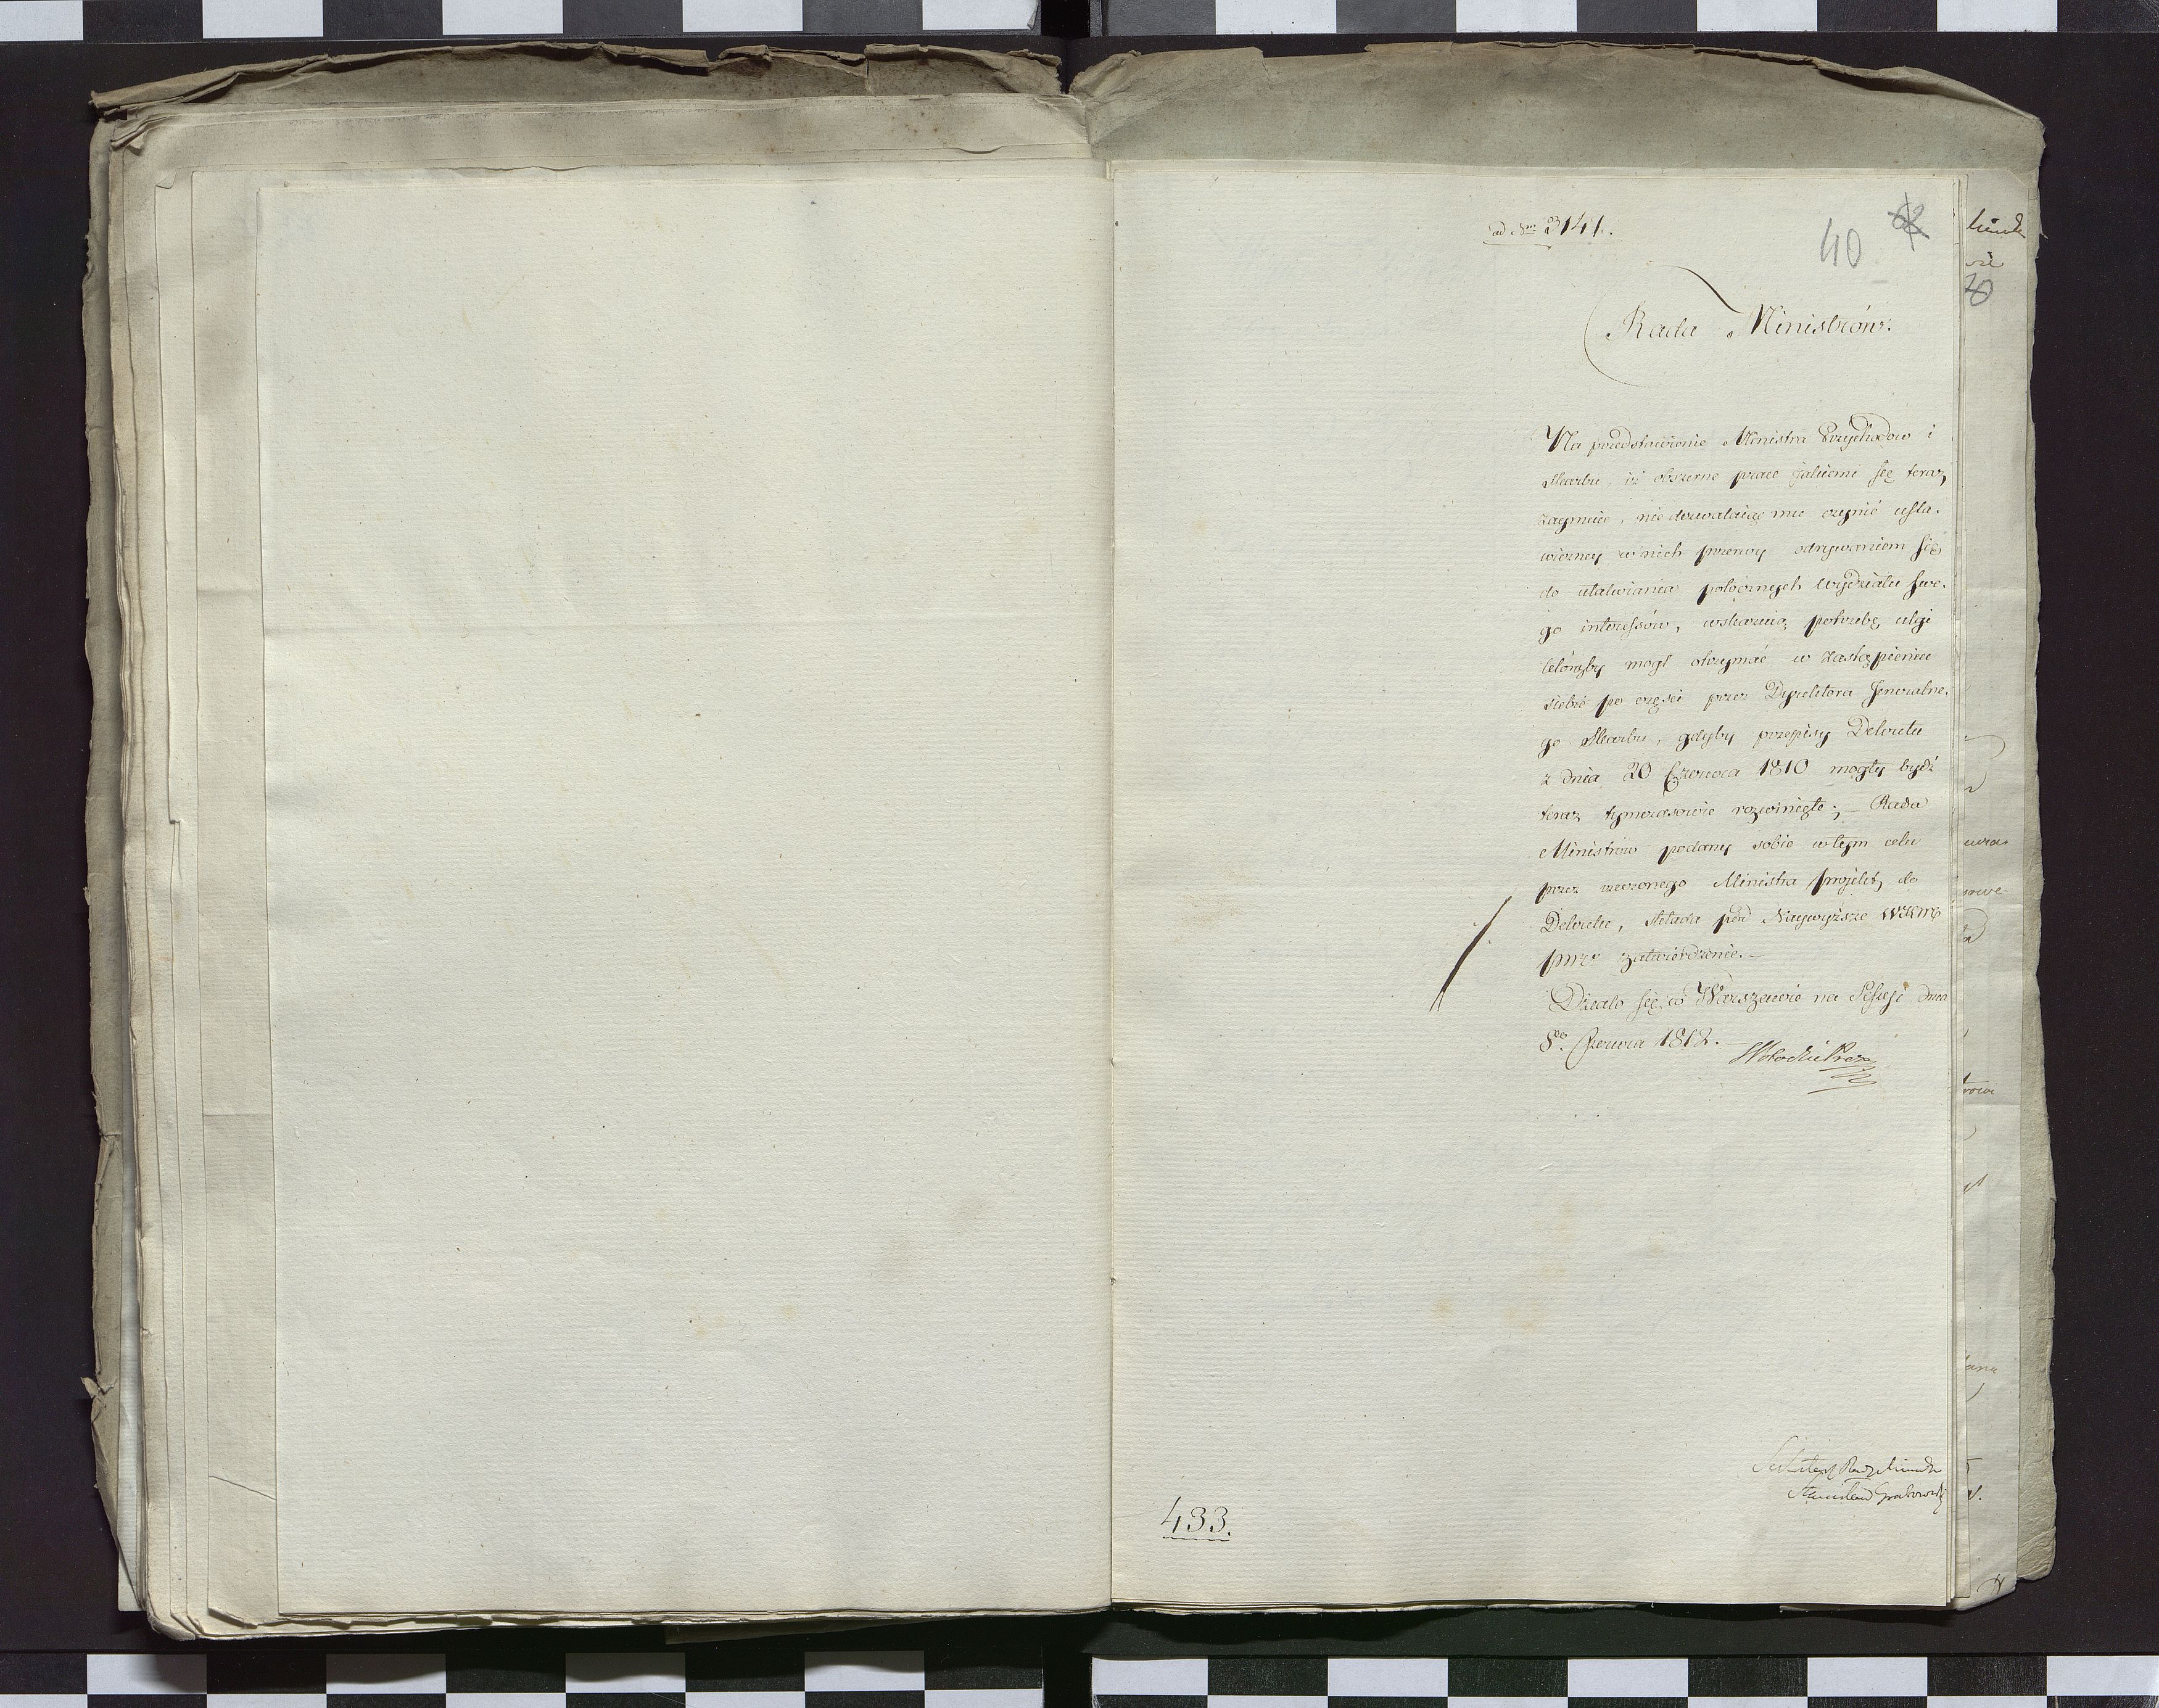 ad Nrm 3141.
40
Rada Ministrów.
Na przedstawienie Ministra Przychodów i
Skarbu, iż obszerne prace jakiemi się teraz
zaymuie, nie dozwalaią mu czynić usta-
wiczney w nich przerwy odrywaniem się
do ułatwiania potocznych Wydziału swe-
go interessów, wskazuią potrzebę ulgi
którąby mógł otrzymać w zastąpieniu
siebie po części przez Dyrektora Jeneralne-
go Skarbu, gdyby przepisy Dekretu
z dnia 20 Czerwca 1810 mogły bydź
teraz tymczasowie rozwinięte; – Rada
Ministrów podany sobie w tym celu
przez rzeczonego Ministra projekt do
Dekretu, składa pod Naywyższe WKMci
zatwierdzenie. –
Działo się w Warszawie na Sessyi dnia
8go Czerwca 1812. –
Stanisław Grabowski
433.